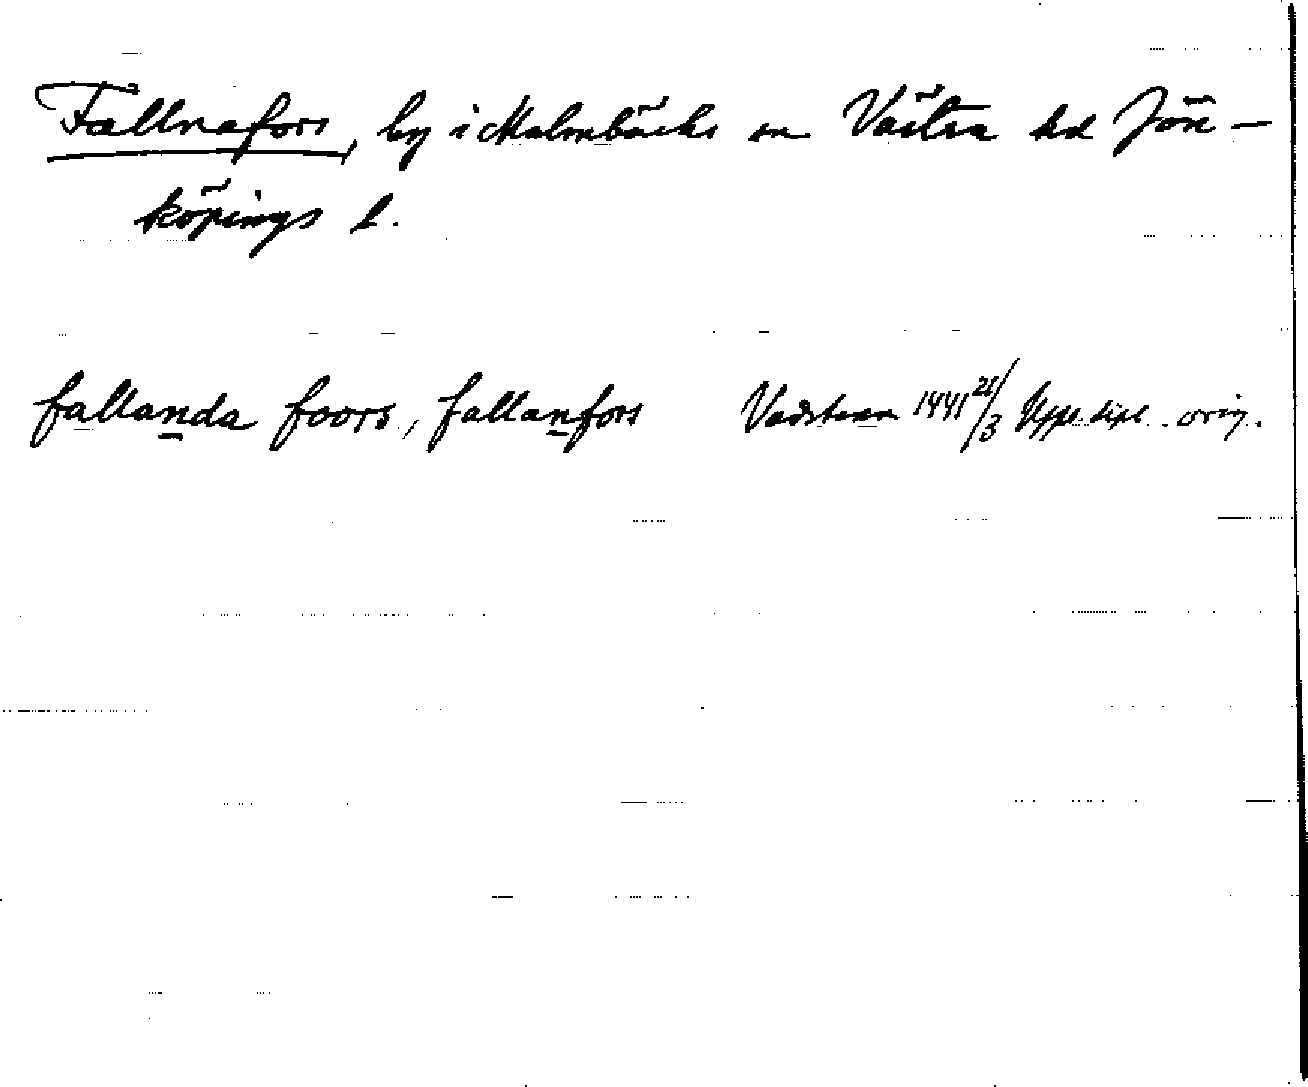 Fallnafors, by i Malmbäcks sn Västra hd Jön-
köpings l.
fallanda foors, fallanfors Vadstena 1441 21/3 Upps. dipl. orig.